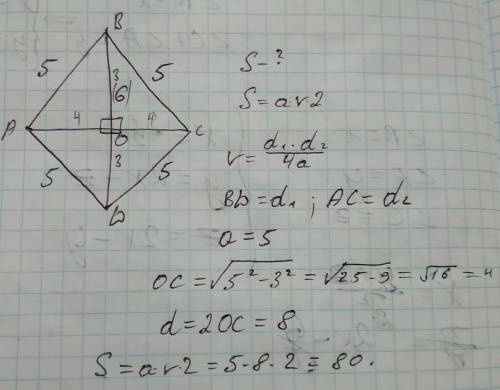 B
5 3 5
(6)
A 4 4 C
O
5 3 5
D
S - ?
S = a r 2
r = d₁ · d₂ / 4a
BD = d₁ ; AC = d₂
a = 5
OC = √5² - 3² = √25 - 9 = √16 = 4
d = 2OC = 8
S = a r · 2 = 5 · 8 · 2 = 80.